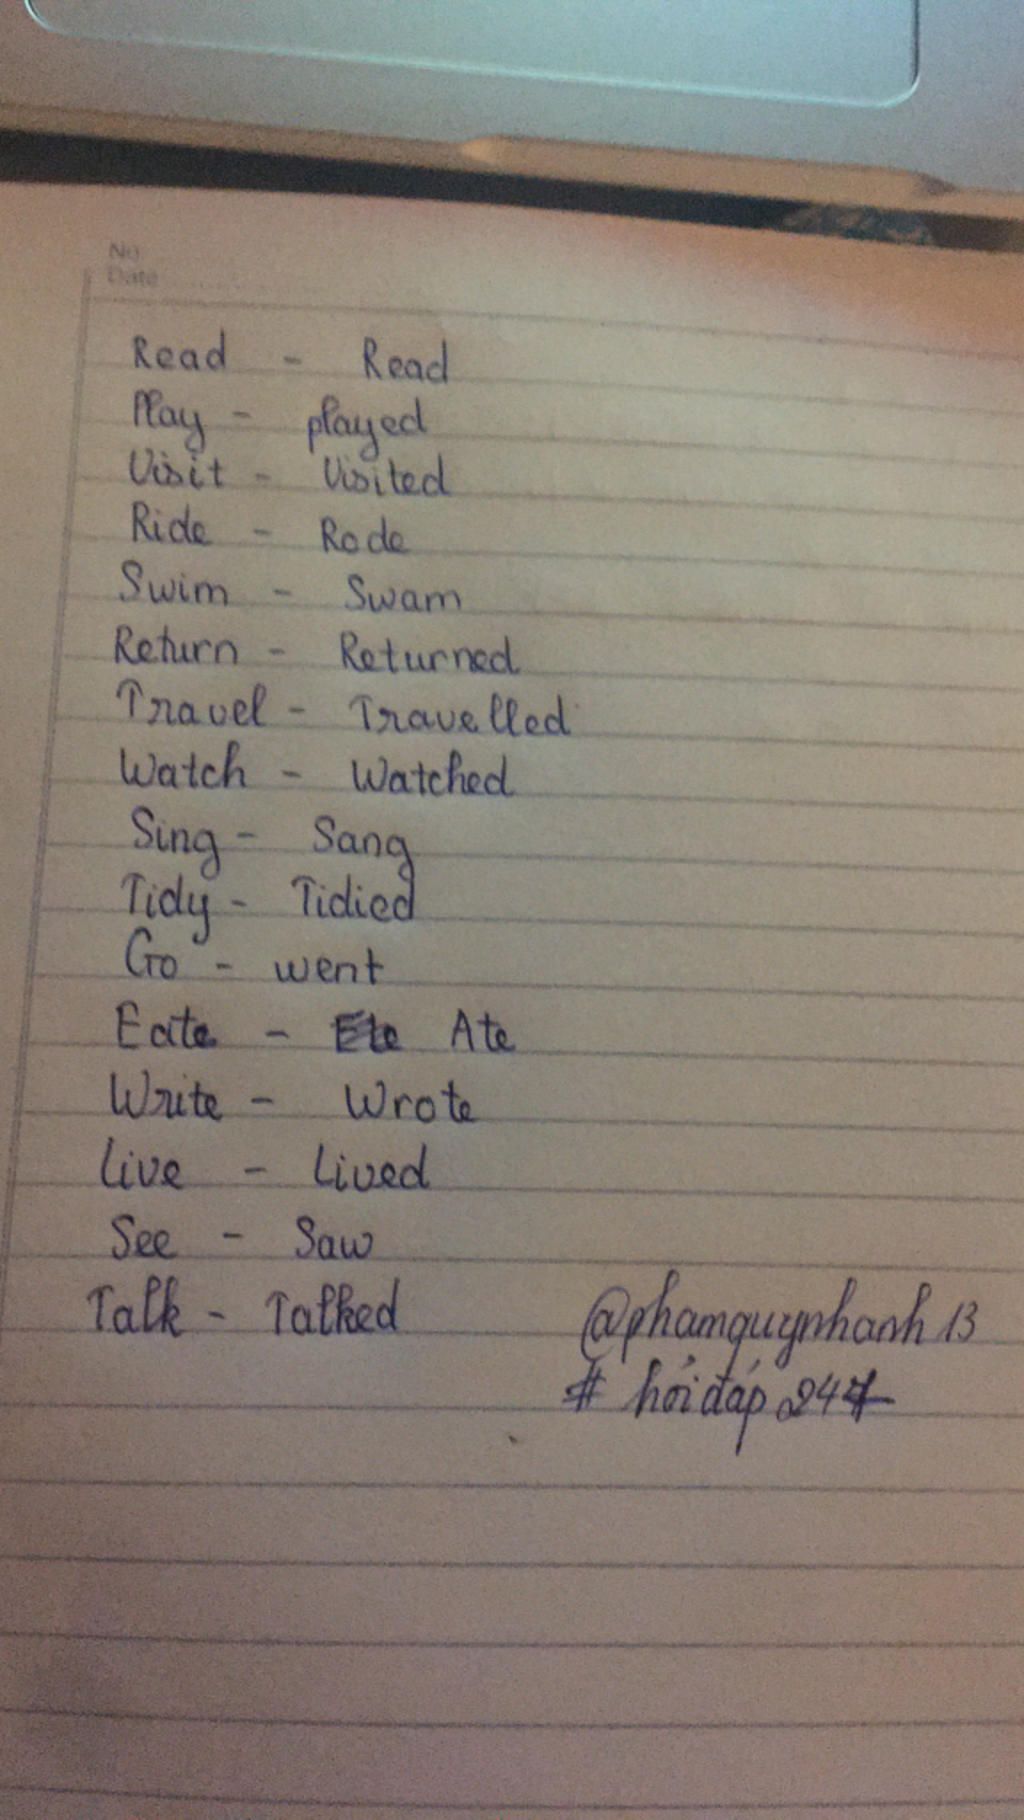 No
Date
Read - Read
Play - played
Visit - Visited
Ride - Rode
Swim - Swam
Return - Returned
Travel - Travelled
Watch - Watched
Sing - Sang
Tidy - Tidied
Go - went
Eate - Ete Ate
Write - Wrote
Live - Lived
See - Saw
Talk - Talked
@phamquynhanh13
# hỏi đáp 247